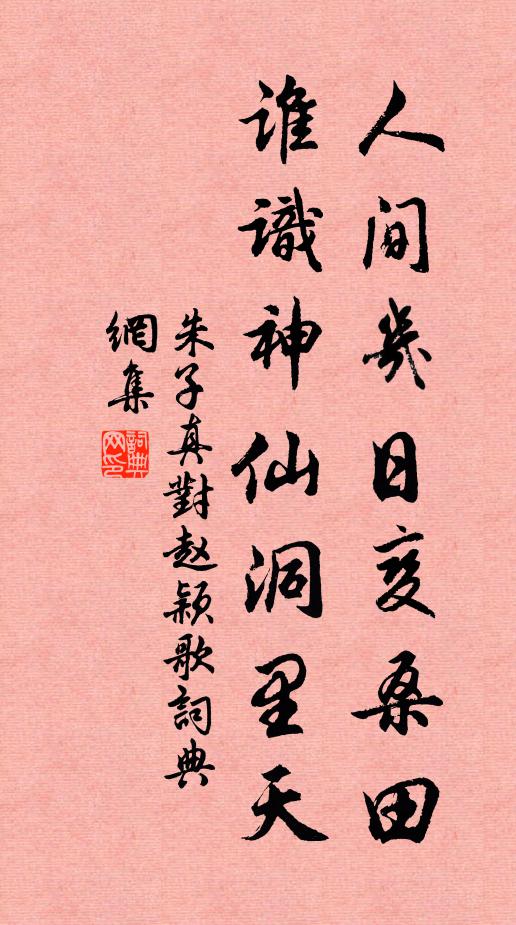 人间几日变桑田
谁識神仙洞里天
朱子真對赵颖歌詞典
網集
詞典網印